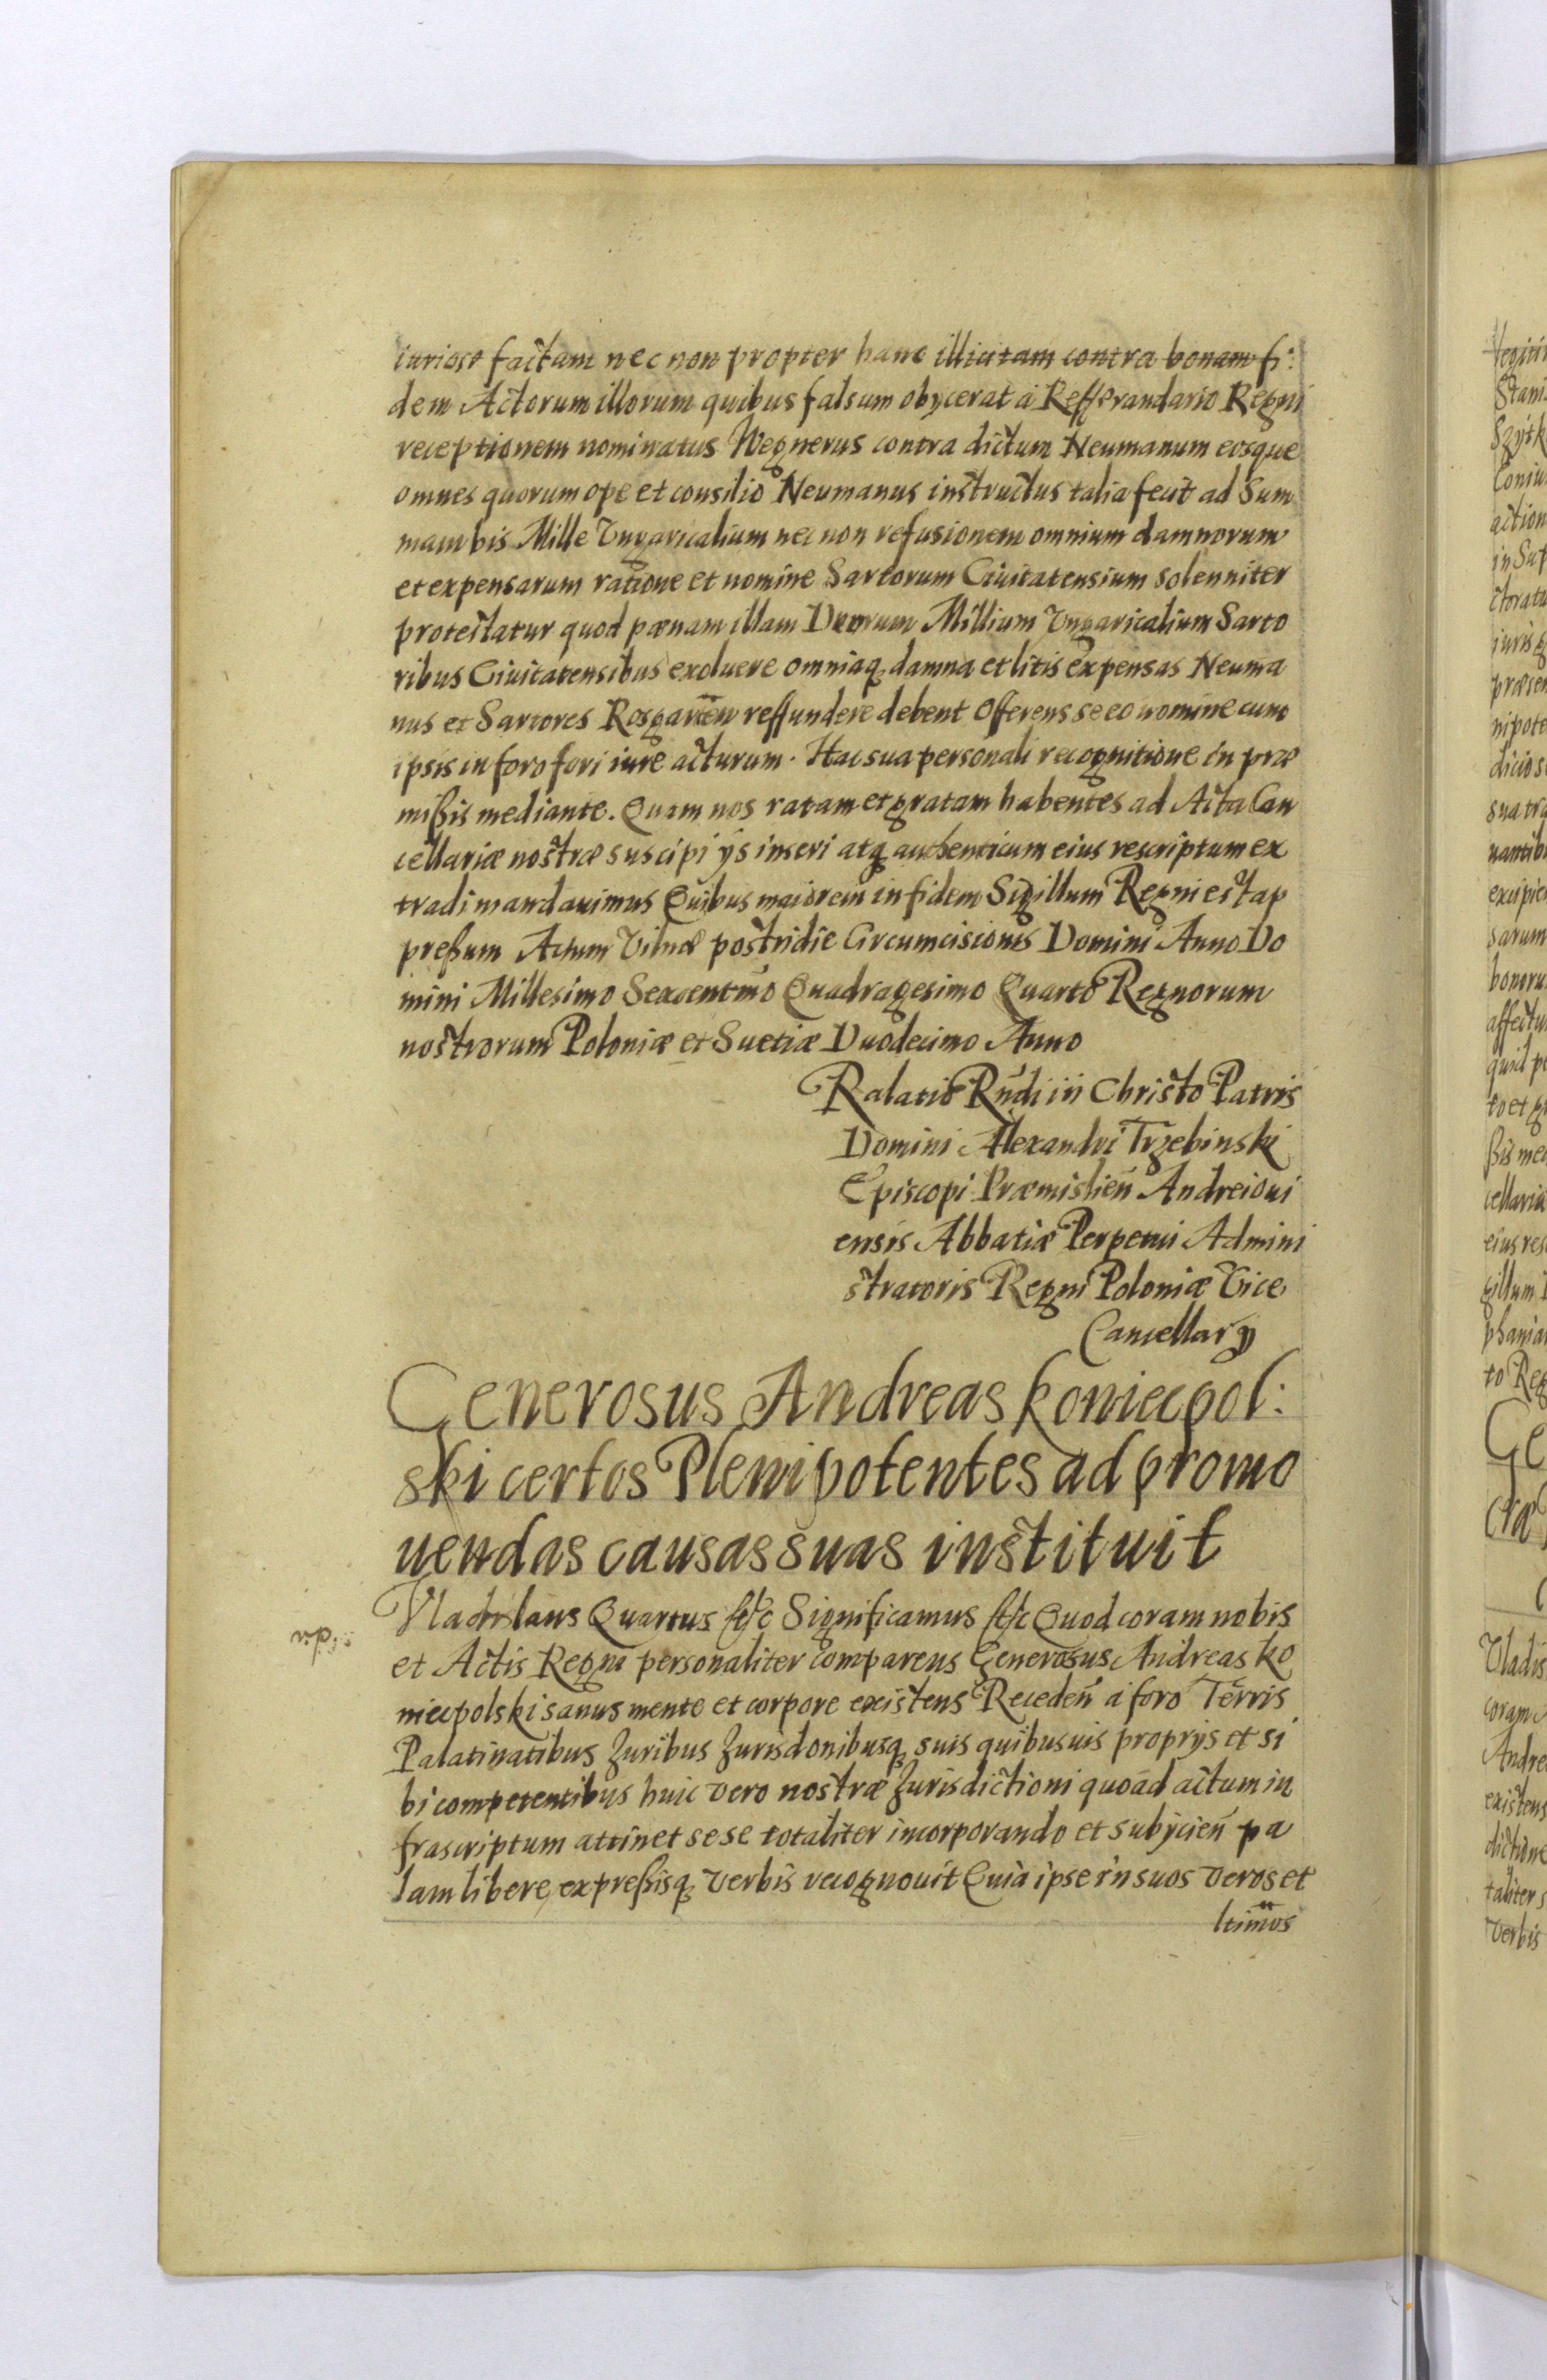 iurioso factam nec non propter hanc illicitam contra bonam fi:
dem Actorum illorum quibus falsum obycerat a Refferandario Regni
receptionem nominatus Wegnerus contra dictum Neumanum eosque
omnes quorum ope et consilio Neumanus instructus talia fecit ad Sum
mam bis Mille Vngaricalium nec non refusionem omnium damnorum
et expensarum ratione et nomine Sartorum Ciuitatensium solenniter
protestatur quod pœnam illam Duorum Millium Vngaricalium Sarto
ribus Ciuitatensibus exoluere omniaq damna et litis expensas Neuma
nus et Sartores Rosgarten reffundere debent Offerens se eo nomine cum
ipsis in foro fori iure acturum. Hac sua personali recognitione in præ
mißis mediante. Quam nos ratam et gratam habentes ad Acta Can
cellariæ nostræ suscipi ÿs inseri atq authenticum eius rescriptum ex
tradi mandauimus Quibus maiorem in fidem Sigillum Regni est ap
preßum Actum Vilnæ postridie Circumcisionis Domini Anno Do
mini Millesimo Sexcentmo Quadragesimo Quarto Regnorum
nostrorum Poloniæ et Suetiæ Duodecimo Anno
Ralatio Rndi in Christo Patris
Domini Alexandri Trzebinski
Episcopi Præmislien Andreioui
ensis Abbatiæ Perpetui Admini
stratoris Regni Poloniæ Vice
Cancellary
Generosus Andreas Koniecpol:
ski certos Plenipotentes ad promo
uendas causas suas instituit
Vladislaus Quartus etc Significamus etc Quod coram nobis
et Actis Regni personaliter comparens Generosus Andreas Ko
niecpolski sanus mente et corpore existens Receden a foro Terris
Palatinatibus Juribus Jurisdonibusq suis quibusuis proprÿs et si
bi competentibus huic vero nostræ Jurisdictioni quoad actum in
frascriptum attinet sese totaliter incorporando et subÿcien pa
lam libere expreßisq verbis recognouit Quia ipse in suos veros et
ltimos